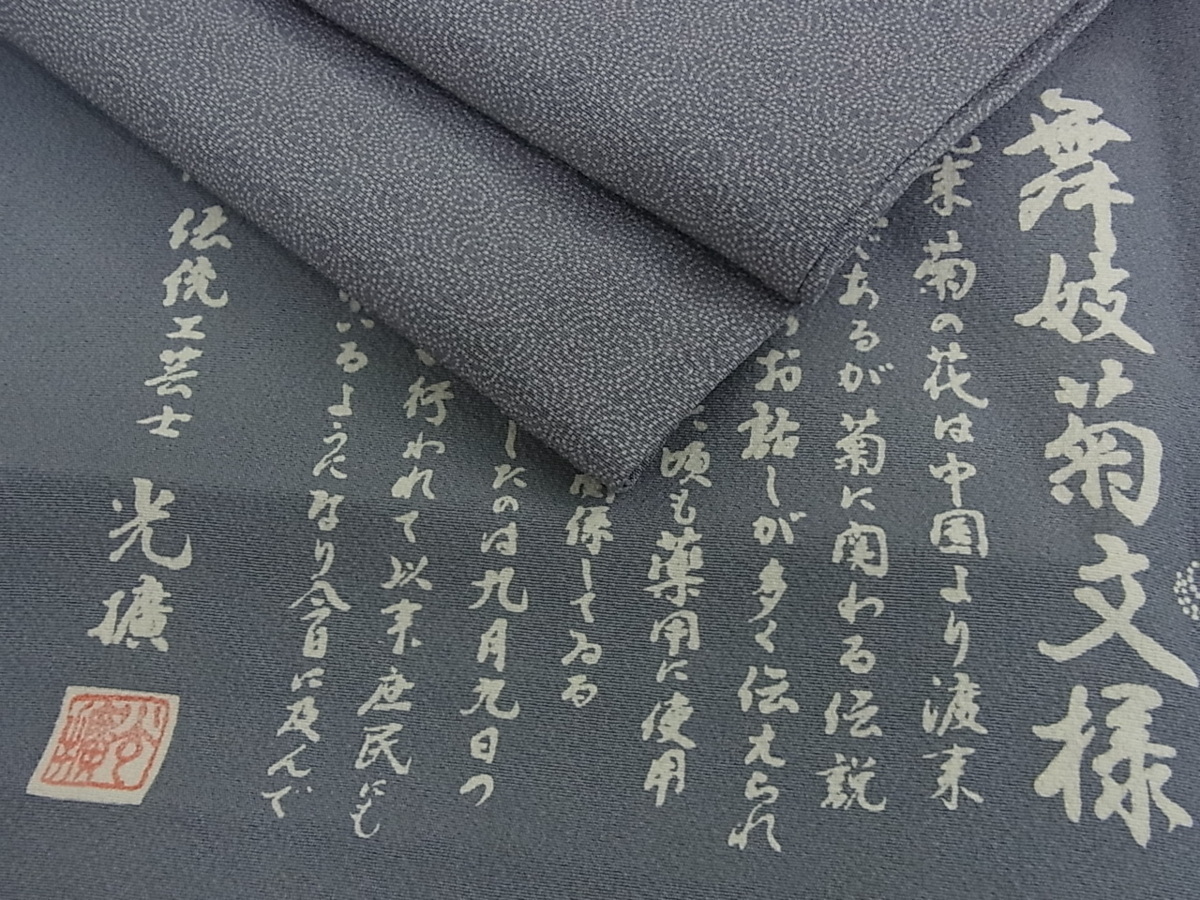 舞妓菊文様
来菊の花は中国より渡来
であるが菊に関わる伝説
お話しが多く伝えられ
頃も薬用に使用
係してゐる
したのは九月九日つ
行われて以来庶民にも
いるようになり今日に及んで
伝統工芸士
光擴